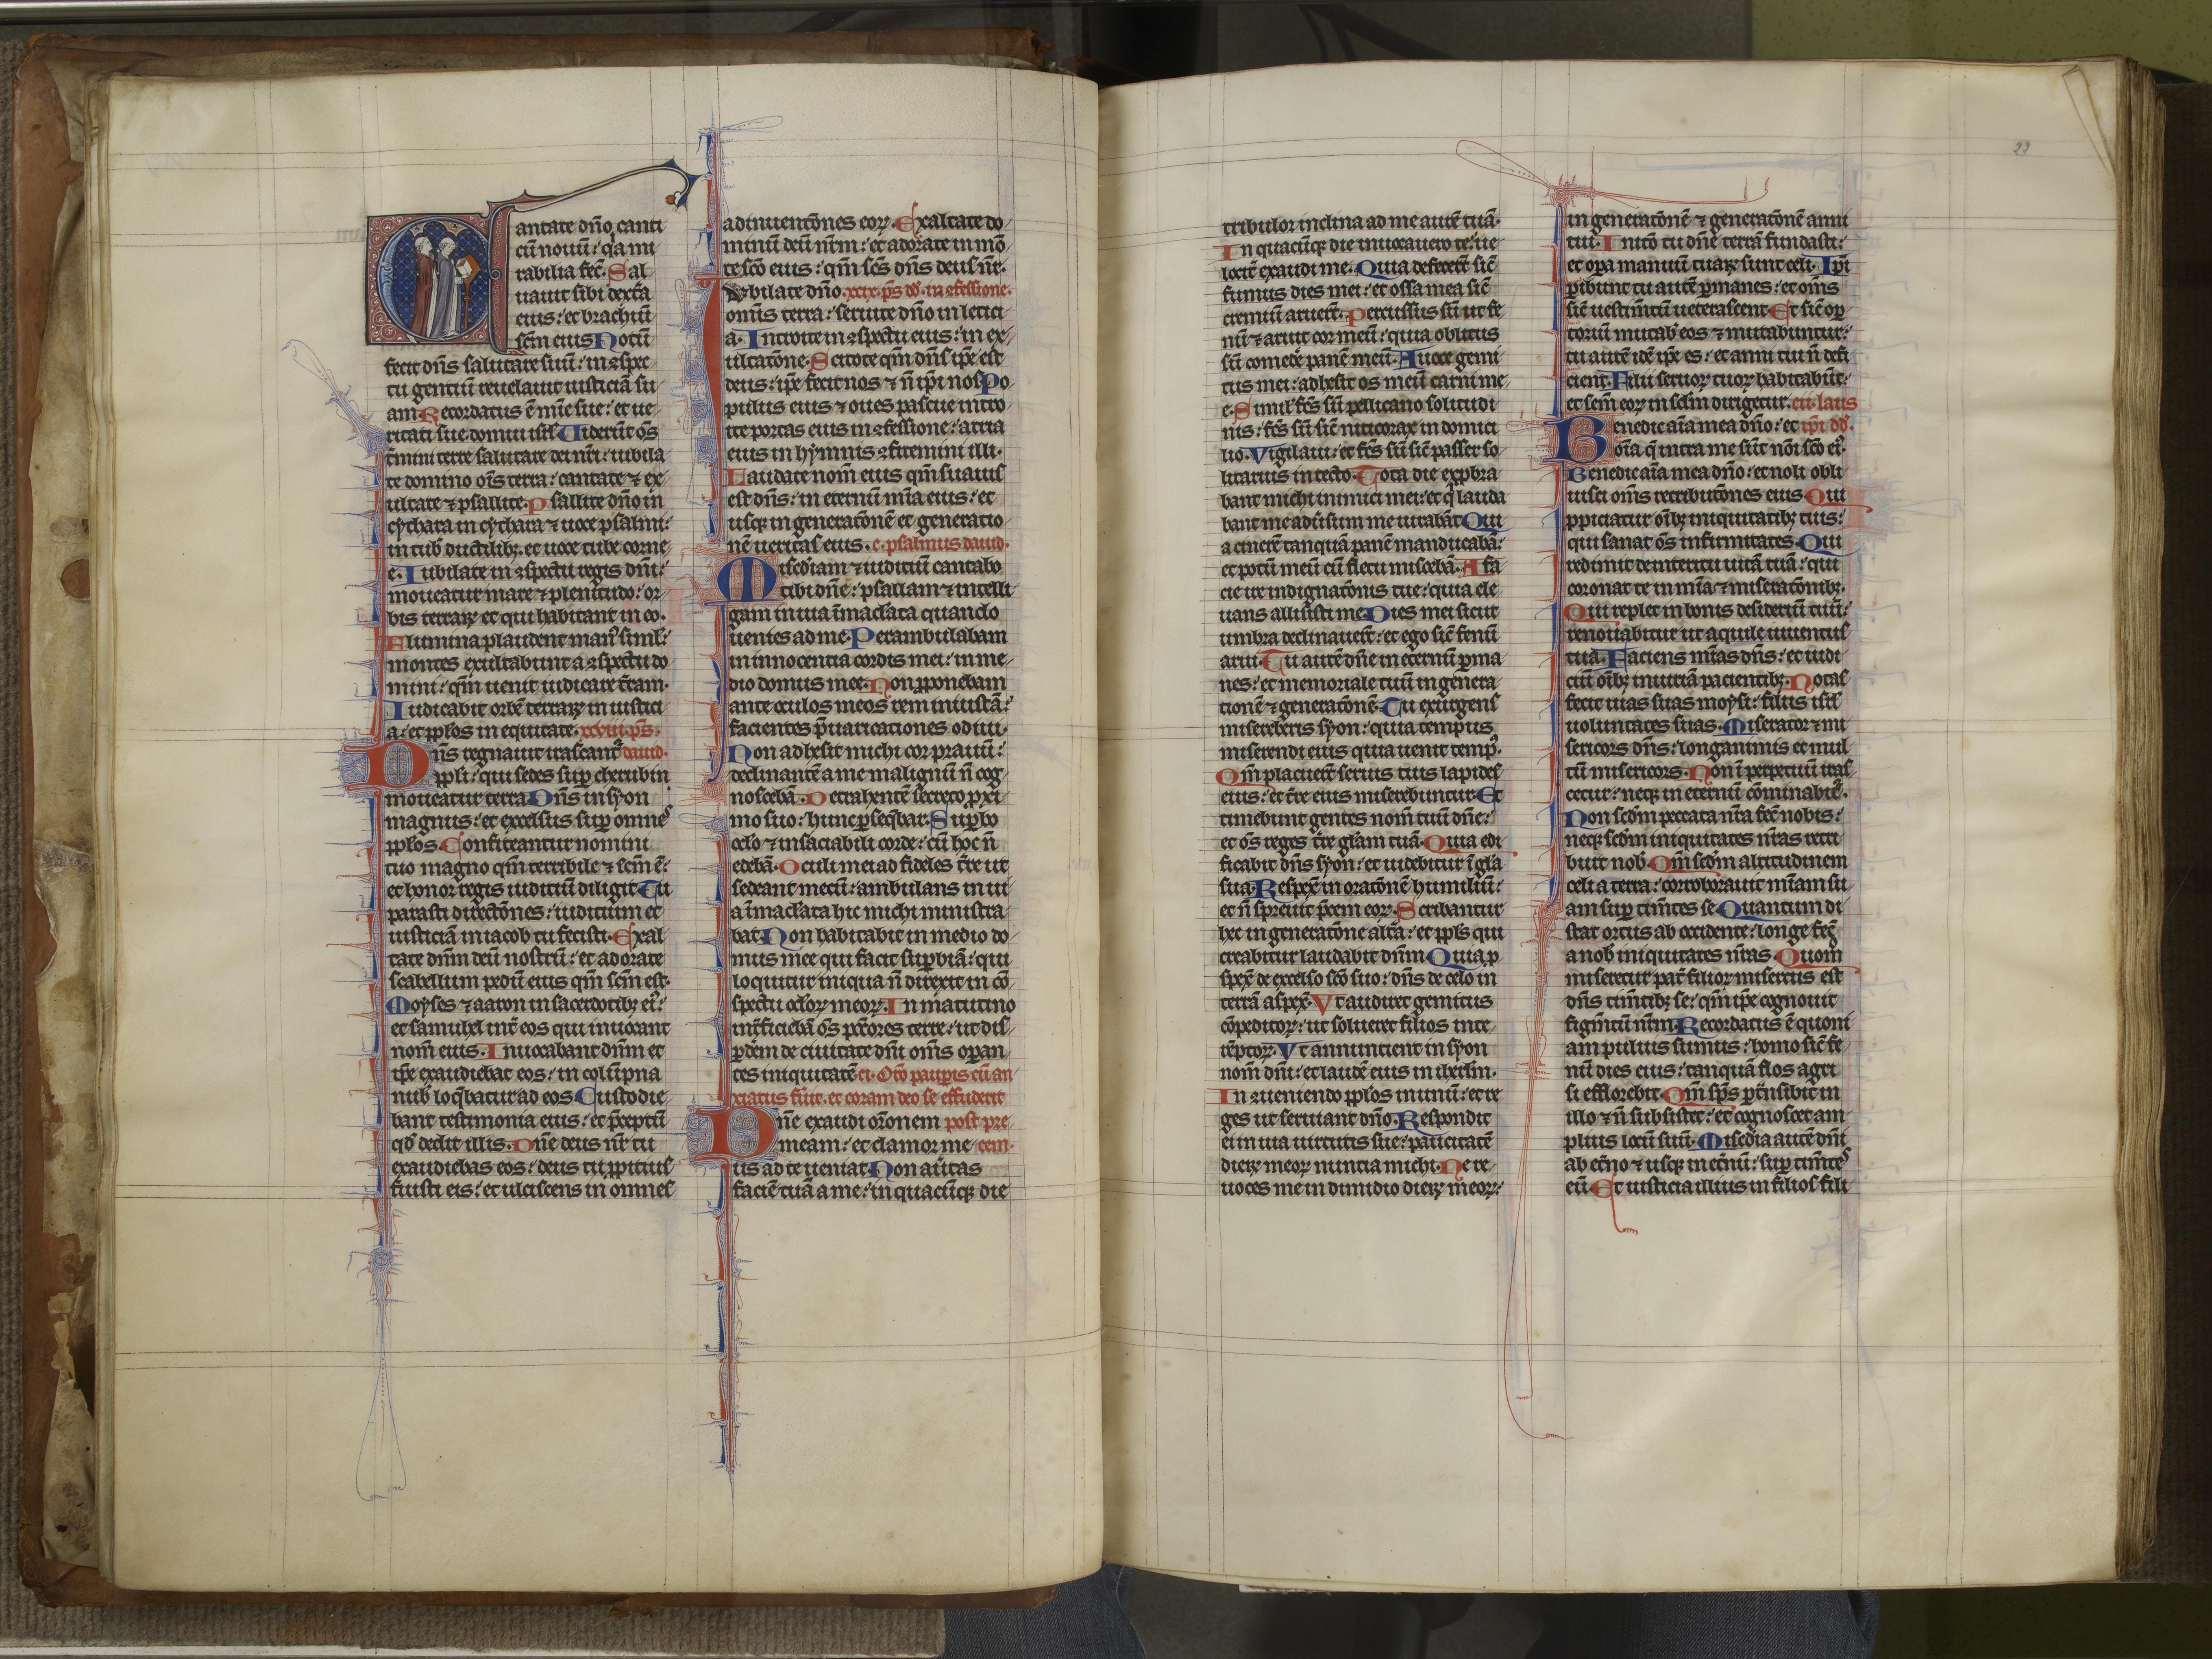 antate dño canti
cũ nouũ: q̃a mi
rabilia fec̃. Sal
uauit sibi dext̃a
eius: et brachiũ
sc̃m eius Notũ
fecit dñs salutare suũ: in ꝯspec
tu gentiũ reuelauit iusticiã su
am Recordatus ẽ mĩe sue: et ue
ritati sue domui isrl̃ Uiderũt õs
t̃mini terre salutare dei nr̃i: iubila
te domino ois terra: cantate ⁊ ex
ultate ⁊ psallite. Psallite dño in
cythara in cythara ⁊ uoce psalmi:
in tub̃ ductilibꝫ. et uoce tube corne
e. Iubilate in ꝯspectu regis dñi:
moueatur mare ⁊ plenitudo: or
bis terraꝝ et qui habitant in eo.
Flumina plaudent manꝰ siml̃:
montes exultabunt a ꝯspectu do
mini: qm̃ uenit iudicare t̃ram.
Iudicabit orbẽ terraꝝ in iustici
a: et ppl̃os in equitate. xcviii ps̃.
Dñs regnauit irascant̃ dauid.
ppl̃i: qui sedes suꝑ cherubin
moueatur terra Dñs in syon
magnus: et excelsus suꝑ omnes
ppl̃os. Confiteantur nomini
tuo magno qm̃ terribile ⁊ sc̃m ẽ:
et honor regis iudiciũ diligit Tu
parasti directõnes: iudicium et
iusticiã in iacob tu fecisti. Exal
tate dñm deũ nostrũ: et adorate
scabellum pedũ eius qm̃ sc̃m est.
Moyses ⁊ aaron in sacerdotibꝫ eiꝰ:
et samuhel int̃ eos qui inuocant
nom̃ eius. Inuocabant dñm et
ip̃e exaudiebat eos: in colũpna
nub̃ loq̃batur ad eos Custodie
bant testimonia eius: et p̃ceptũ
qđ dedit illis. Dñe deus nr̃ tu
exaudiebas eos: deus tu ꝓpitius
fuisti eis: et ulciscens in omnes
adinuentõnes eoꝝ. Exaltate do
minũ deũ nr̃m: et adorate in mõ
te sc̃o eius: qm̃ sc̃s dñs deus nr̃.
Iubilate dño. xcix. ps̃ dđ. in ꝯfessione.
omĩs terra: seruite dño in letici
a. Introite in ꝯspectu eius: in ex
ultatõne. Scitote qm̃ dñs ip̃e est
deus: ip̃e fecit nos ⁊ ñ ip̃i nos Po
pulus eius ⁊ oues pascue intro
ite portas eius in ꝯfessione: atria
eius in hymnis ꝯfitemini illi.
Laudate nom̃ eius qm̃ suauis
est dñs: in eternũ mĩa eius: et
usqꝫ in generatõnẽ et generatio
nẽ ueritas eius. c. psalmus dauid.
Mis̃ediam ⁊ iudiciũ cantabo
tibi dñe: psallam ⁊ intelli
gam in uia ĩmaclata quando
uenies ad me. Perambulabam
in innocentia cordis mei: in me
dio domus mee. Non ꝓponebam
ante oculos meos rem iniustã:
facientes p̃uaricationes odiui.
Non adhesit michi cor prauũ:
declinantẽ a me malignũ ñ cog
noscebã. Detrahentẽ secreto ꝓxi
mo suo: hunc ꝑseq̃bar. Suꝑbo
oc̃lo ⁊ insaciabili corde: cũ hoc ñ
edebã. Oculi mei ad fideles t̃re ut
sedeant mecũ: ambulans in ui
a ĩmac̃lata hic michi ministra
bat. Non habitabit in medio do
mus mee qui facit suꝑbiã: qui
loquitur iniqua ñ direxit in cõ
spectu oc̃loꝝ meoꝝ. In matutino
int̃ficiebã õs pct̃ores terre: ut dis
ꝑdẽm de ciuitate dñi omĩs oꝑan
tes iniquitatẽ. ci. Orõ pauꝑis cũ an
xiatus fũit. et coram deo se effuderit
Dñe exaudi or̃onem post pre
meam: et clamor me cem.
us ad te ueniat. Non au̾tas
faciẽ tuã a me: in quacũqꝫ die
23
tribulor inclina ad me aurẽ tuã.
In quacũqꝫ die inuocauero te: ue
locit̃ exaudi me. Quia defecer̃t sic̃
fumus dies mei: et ossa mea sic̃
cremiũ aruer̃t. Percussus sũ ut fe
nũ ⁊ aruit cor meũ: quia oblitus
sũ comedẽ panẽ meũ. A uoce gemi
tus mei: adhesit os meũ carni me
e. Simil̃ fc̃s sũ pellicano solitudi
nis: fc̃s sũ sic̃ niticorax in domici
lio. Vigilaui: et fc̃s sũ sic̃ passer so
litarius in tecto. Tota die exꝓbra
bant michi inimici mei: et q̃ lauda
bant me adũsum me iurabãt Qui
a cinerẽ tanquã panẽ manducabã:
et potũ meũ cũ fletu miscebã. A fa
cie ire indignatõnis tue: quia ele
uans allisisti me. Dies mei sicut
umbra declinauer̃t: et ego sic̃ fenũ
arui. Tu autẽ dñe in eternũ ꝑma
nes: et memoriale tuũ in genera
tionẽ ⁊ generatõnẽ. Tu exurgens
misereberis syon: quia tempus
miserendi eius quia uenit tempꝰ.
Qm̃ placuer̃t seruis tuis lapides
eius: et t̃re eius miserebuntur. Et
timebunt gentes nom̃ tuũ dñe:
et õs reges t̃re gl̃am tuã. Quia edi
ficabit dñs syon: et uidebitur ĩ gl̃a
sua Respex̃ in oratõnẽ humiliũ:
et ñ spreuit p̃cem eoꝝ. Scribantur
hec in generatõne alt̃a: et ppl̃s qui
creabitur laudabit dñm Quia ꝓ
spex̃ de excelso sc̃o suo: dñs de celo in
terrã aspex̃. Vt audiret gemitus
cõpeditoꝝ: ut solueret filios inte
rẽptoꝝ. Vt annuntient in syon
nom̃ dñi: et laudẽ eius in ihrl̃m.
In ꝯueniendo ppl̃os in unũ: et re
ges ut seruiant dño. Respondit
ei in uia uirtutis sue: paucitatẽ
dieꝝ meoꝝ nuntia michi. Ne re
uoces me in dimidio dieꝝ meoꝝ:
in generatõnẽ ⁊ generatõnẽ anni
tui. Initõ tu dñe terrã fundasti:
et oꝑa manuũ tuaꝝ sunt celi. Ip̃i
ꝑibunt tu autẽ ꝑmanes: et om̃s
sic̃ uestim̃tũ ueterascent. Et sic̃ oꝑ
toriũ mutab̃ eos ⁊ mutabuntur:
tu autẽ idẽ ip̃e es: et anni tui ñ defi
cient. Filii seruoꝝ tuoꝝ habitabũt:
et sem̃ eoꝝ in sc̃lm dirigetur. cii. laus
Benedic aĩa mea dño: et ip̃i dđ.
oĩa q̃ intra me sũt nõi sc̃o eiꝰ.
Benedic aĩa mea dño: et noli obli
uisci omĩs retributõnes eius Qui
ꝓpiciatur oĩbꝫ iniquitatibꝫ tuis:
qui sanat õs infirmitates. Qui
redimit de interitu uitã tuã: qui
coronat te in mĩa ⁊ miseratõnibꝫ.
Qui replet in bonis desideriũ tuũ:
renouabitur ut aquile iuuentus
tua. Faciens mĩas dñs: et iudi
ciũ oĩbꝫ iniuriã pacientibꝫ. Notas
fecit uias suas moysi: filiis isrl̃
uoluntates suas. Miserator ⁊ mi
sericors dñs: longanimis et mul
tũ misericors. Non ĩ perpetuũ iras
cetur: neqꝫ in eternũ cõminabit̃.
Non sc̃dm peccata nr̃a fec̃ nobis:
neqꝫ sc̃dm iniquitates nr̃as retri
buit nob̃. Qm̃ sc̃dm altitudinem
celi a terra: corroborauit mĩam su
am suꝑ tim̃tes se Quantum di
stat ortus ab occidente: longe fec̃
a nob̃ iniquitates nr̃as. Quom̃
miseretur pat̃ filioꝝ misertus est
dñs tim̃tibꝫ se: qm̃ ip̃e cognouit
figm̃tũ nr̃m. Recordatus ẽ quoni
am puluis sumus: homo sic̃ fe
nũ dies eius: tanquã flos agri
si efflorebit. Qm̃ sp̃s ꝑt̃nsibit in
illo ⁊ ñ subsistet: et cognoscet am
plius locũ suũ. Mis̃edia autẽ dñi
ab et̃no ⁊ usqꝫ in et̃nũ: suꝑ tim̃tes
eũ Et iusticia illius in filios fili